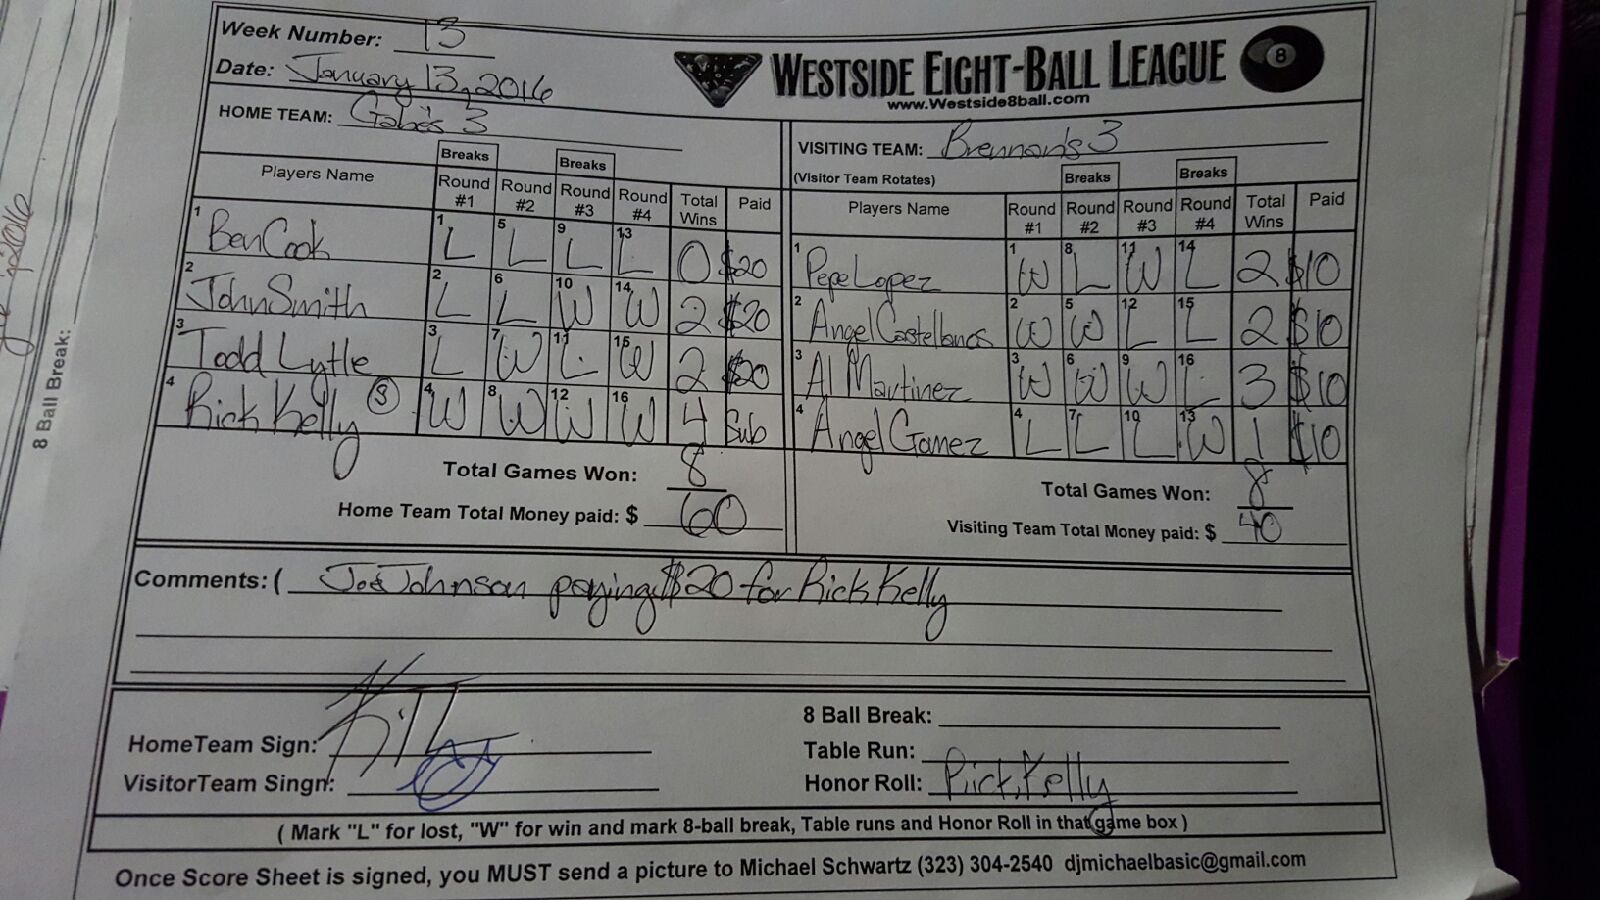 Week Number: 13
Date: January 13, 2016
WESTSIDE EIGHT-BALL LEAGUE 8
www.Westside8ball.com
HOME TEAM: Gabe's 3
VISITING TEAM: Brennan's 3
(Visitor Team Rotates)
Breaks Breaks
Players Name Round #1 Round #2 Round #3 Round #4 Total Wins Paid
1 Ben Cook 1 L 5 L 9 L 13 L 0 $20
2 John Smith 2 L 6 L 10 W 14 W 2 $20
3 Todd Lytle 3 L 7 W 11 L 15 W 2 $20
4 Rick Kelly (3) 4 W 8 W 12 W 16 W 4 Sub
Total Games Won: 8
Home Team Total Money paid: $ 60
Breaks Breaks
Players Name Round #1 Round #2 Round #3 Round #4 Total Wins Paid
1 Pepe Lopez 1 W 8 L 11 W 14 L 2 $10
2 Angel Castellanos 2 W 5 W 12 L 15 L 2 $10
3 Al Martinez 3 W 6 W 9 W 16 L 3 $10
4 Angel Gamez 4 L 7 L 10 L 13 W 1 $10
Total Games Won: 8
Visiting Team Total Money paid: $ 40
Comments: ( Joe Johnson paying $20 for Rick Kelly
HomeTeam Sign:
VisitorTeam Singn:
8 Ball Break:
Table Run:
Honor Roll: Rick Kelly
( Mark "L" for lost, "W" for win and mark 8-ball break, Table runs and Honor Roll in that game box )
Once Score Sheet is signed, you MUST send a picture to Michael Schwartz (323) 304-2540 djmichaelbasic@gmail.com
8 Ball Break:
2016